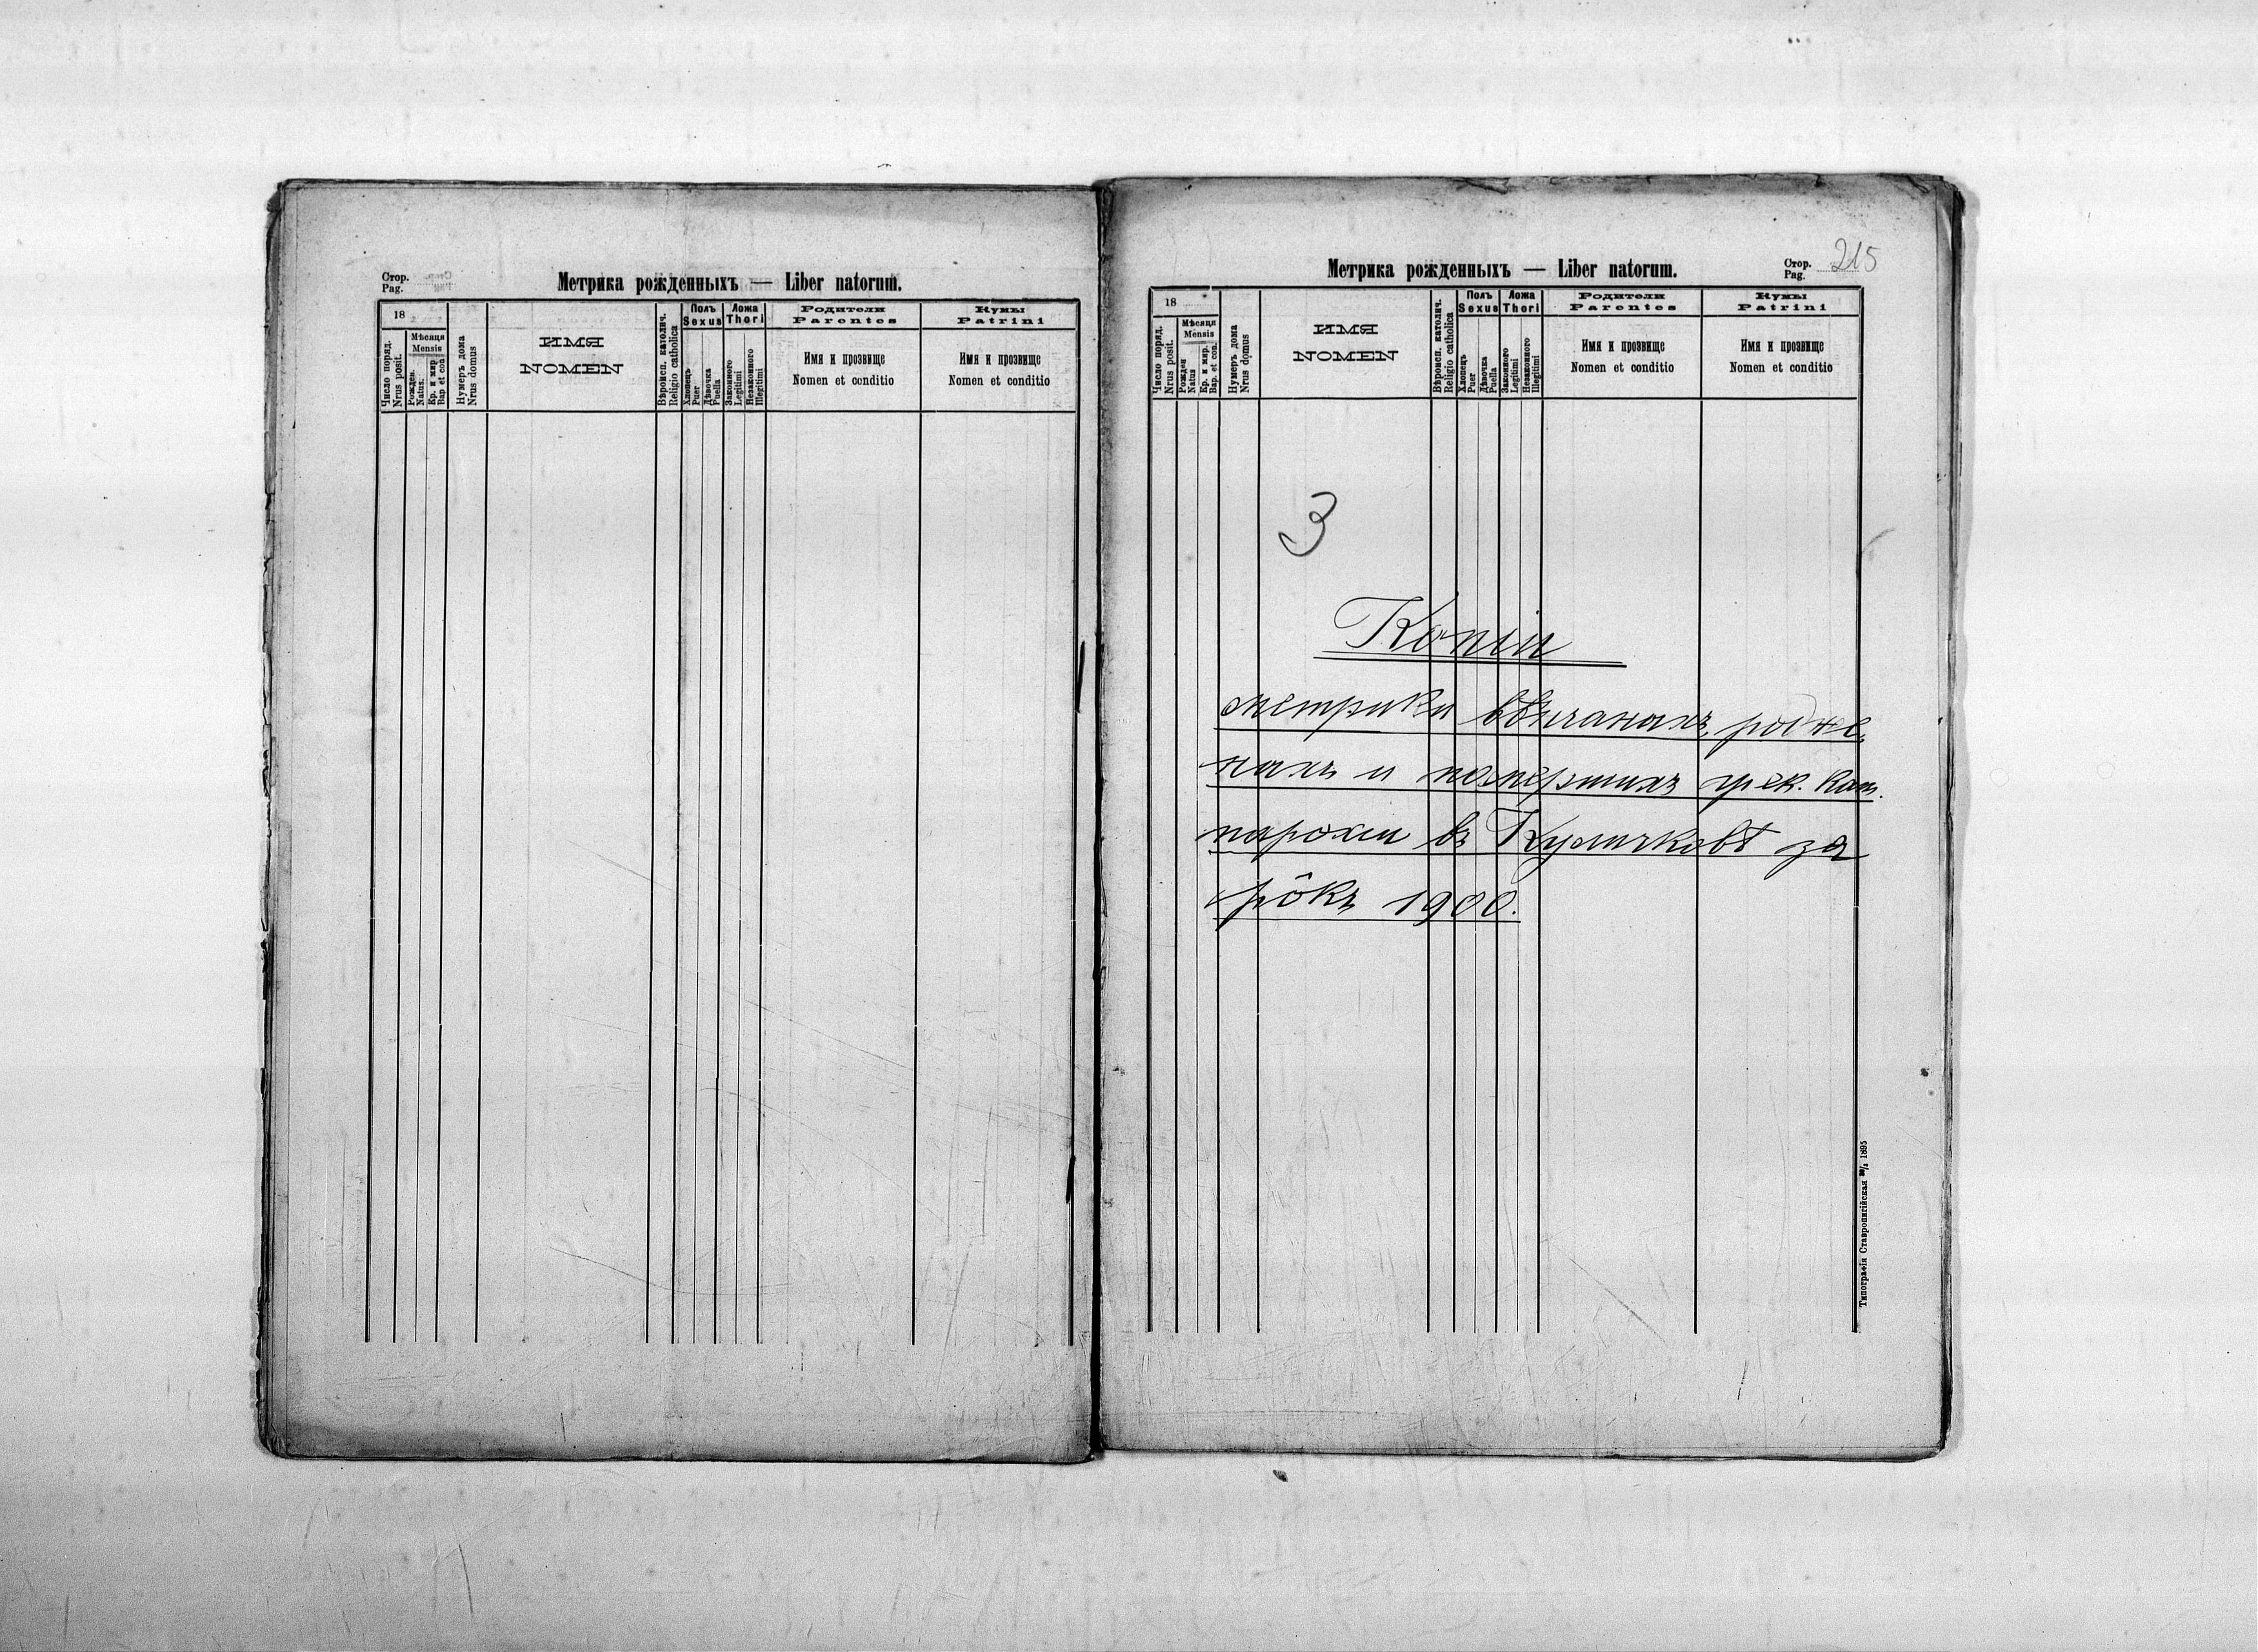 Стор.
Pag.
Метрика рожденныхъ — Liber natorum.
18
Число поряд.
Nrus posit.
Мѣсяця
Mensis
Рожден.
Natus.
Кр. и мѵр.
Bap. et con.
Нумеръ дома
Nrus domus
ИМЯ
NOMEN
Вѣроисп. католич.
Religio catholica
Полъ
Sexus
Хлопець
Puer
Дѣвочка
Puella
Ложа
Thori
Законного
Legitimi
Незаконного
Illegitimi
Родители
Parentes
Имя и прозвище
Nomen et conditio
Кумы
Patrini
Имя и прозвище
Nomen et conditio
Метрика рожденныхъ — Liber natorum.
Стор.
Pag.
215
18
Число поряд.
Nrus posit.
Мѣсяця
Mensis
Рожден
Natus
Кр. и мѵр.
Bap. et con.
Нумеръ дома
Nrus domus
ИМЯ
NOMEN
Вѣроисп. католич.
Religio catholica
Полъ
Sexus
Хлопець
Puer
Дѣвочка
Puella
Ложа
Thori
Законного
Legitimi
Незаконного
Illegitimi
Родители
Parentes
Имя и прозвище
Nomen et conditio
Кумы
Patrini
Имя и прозвище
Nomen et conditio
3
Копіи
метрики вѣнчаныхъ, родже-
ныхъ и помершихъ грек. кат.
парохіи въ Куличковѣ за
рôкъ 1900.
Типографія Ставропигійская 1895